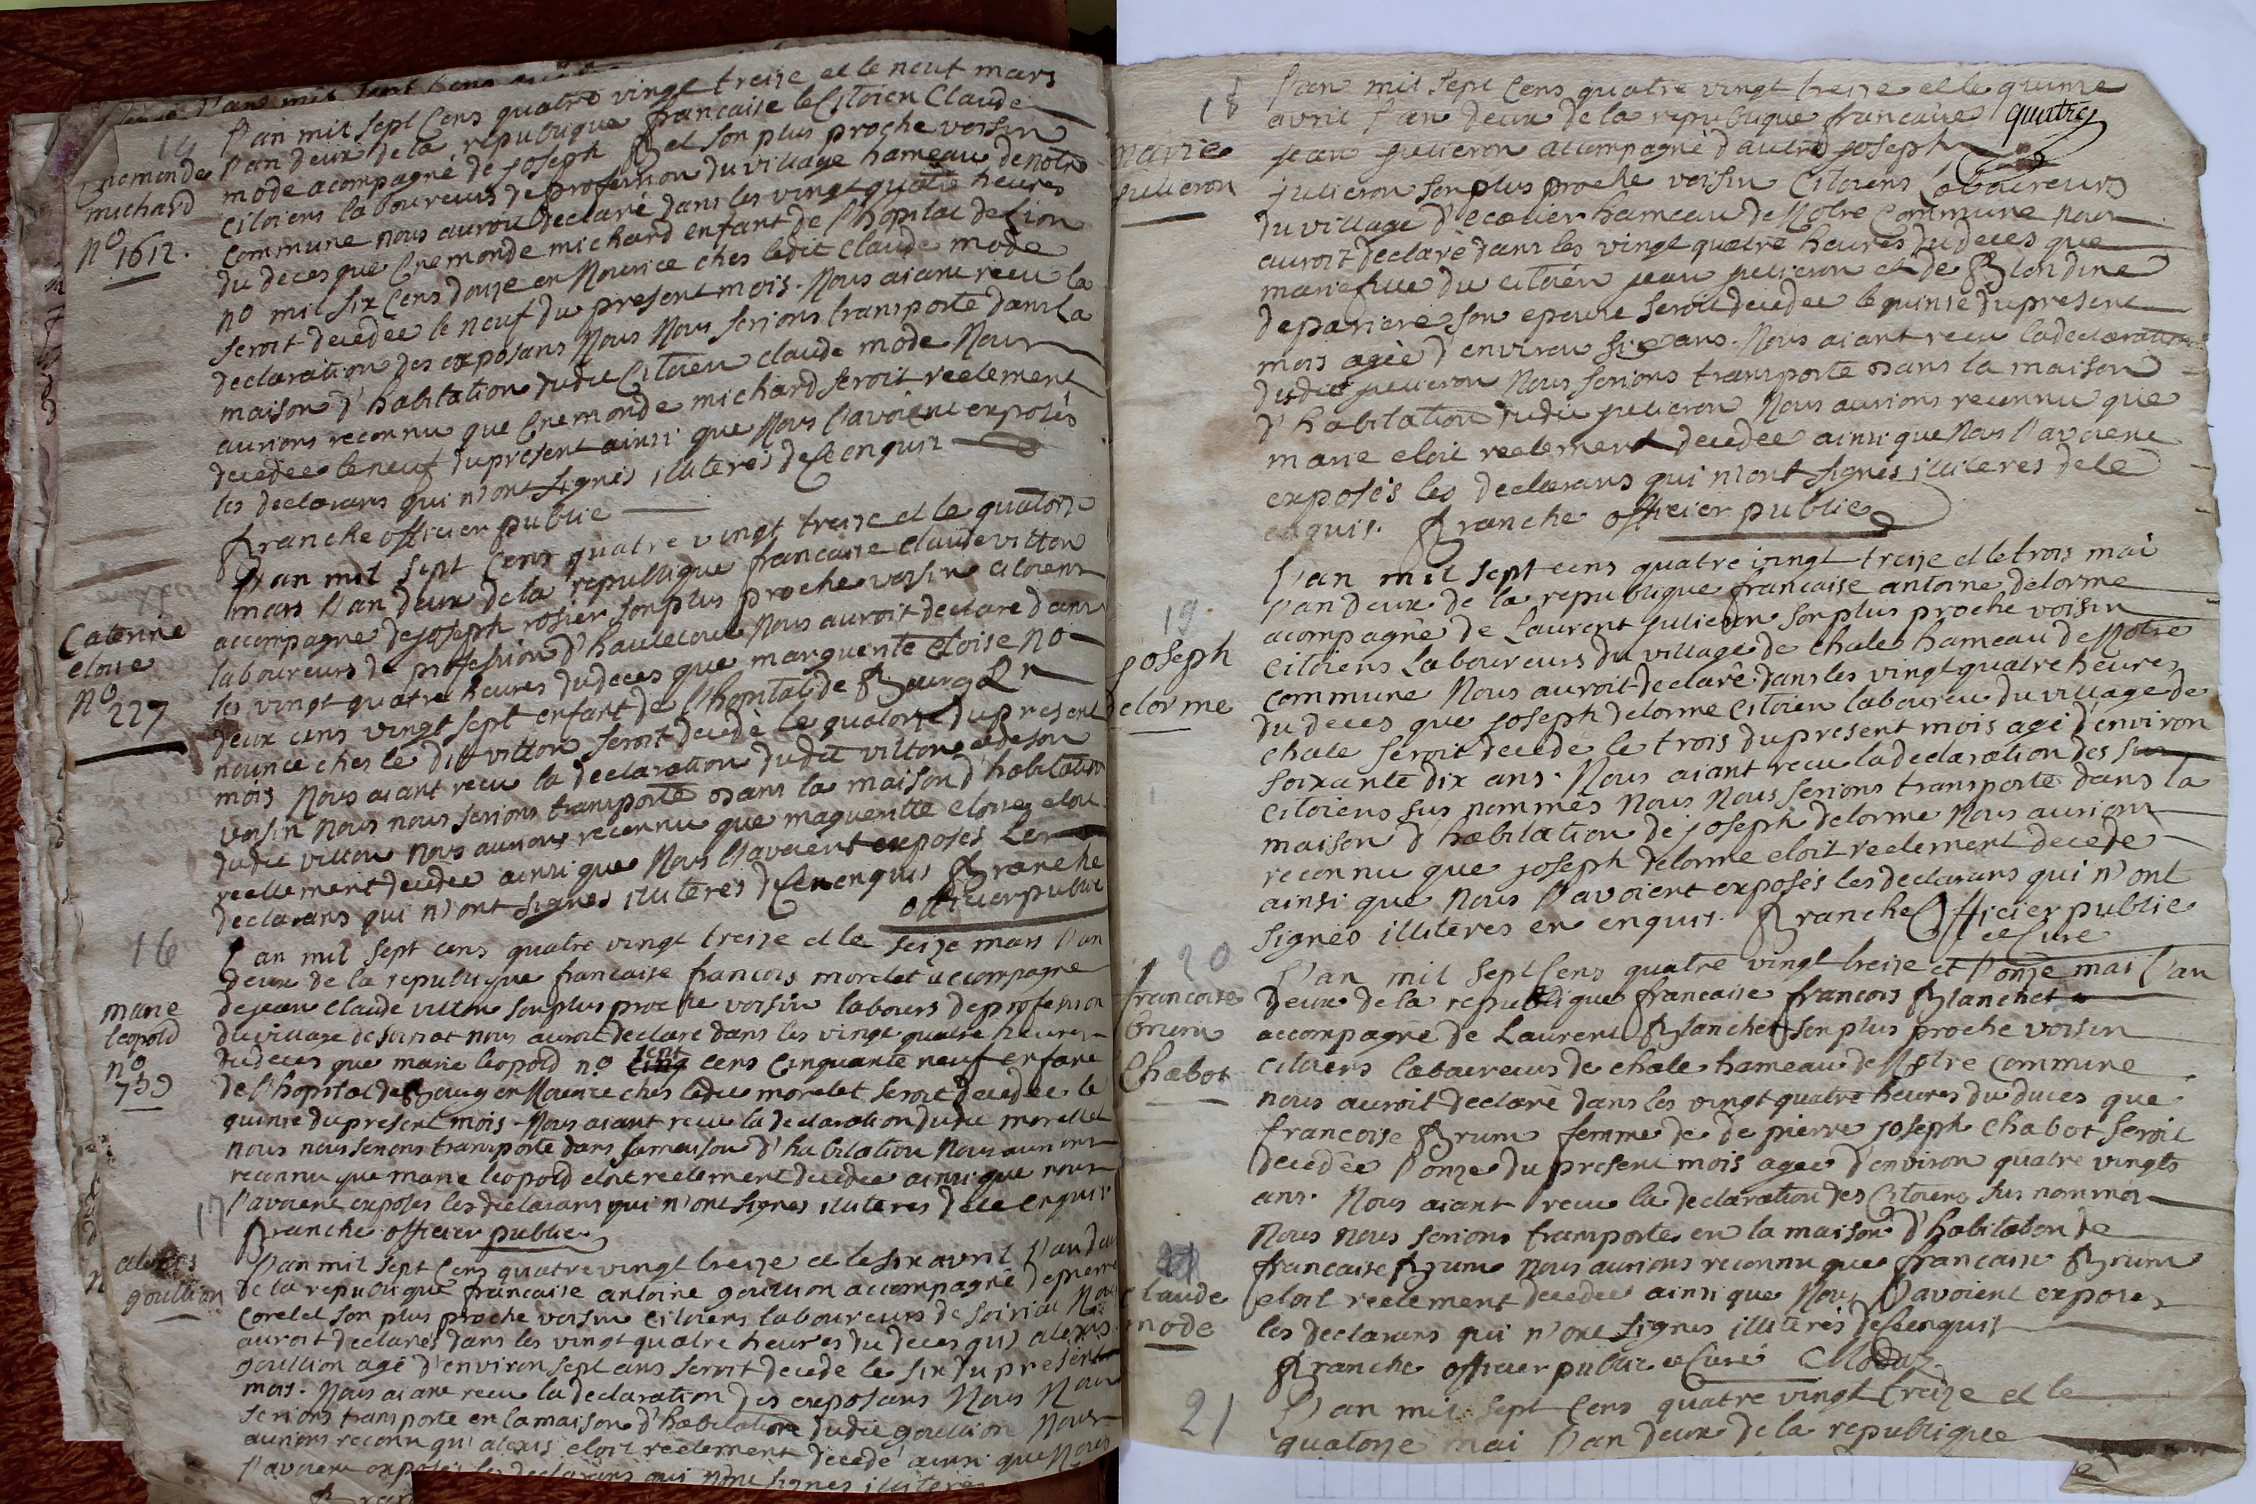 14
Enemonde
michard
No 1612.
L'an mil sept Cens quatre vingt treize et le neuf mars
L'an deux de la republique francaise le Citoien Claude
mode acompagné de joseph et son plus proche voisin
Citoiens laboureurs de profession du village hameau de notre
Commune nous auroit declaré dans les vingt quatre heures
du deces que Enemonde michard enfant de l'hopital de Lion
no mil six Cens douze en Nourice ches ledit Claude mode
seroit decedee le neuf du present mois. Nous aiant recu la
declaration des exposans Nous Nous serions transporte dans la
maison d'habitation dudit Citoien claude mode Nous
aurions reconnu que Enemonde michard seroit reelement
decedee le neuf du present ainsi que Nous l'avoient exposés
les declarans qui n'ont signés illiterés de ce enquis
Branche officier public
Caterine
eloise
No
227
L'an mil sept Cens quatre vingt treize et le quatorze
mars L'an deux de la republique francaise claude vitton
accompagne de joseph rosier son plus proche voisin citoiens
laboureurs de profession d'hautecour Nous auroit declare dans
les vingt quatre heures du deces que marguerite eloise no
deux cens vingt sept enfant de l'hopital de Bourg en
nourice ches le dit vitton seroit decedé le quatorze du present
mois Nous aiant recu la declaration dudit vitton et de son
voisin Nous nous serions transporte dans la maison d'habitation
dudit vitton Nous aurions reconnu que magueritte eloise etoit
reellement decedee ainsi que Nous l'avoient exposés Les
declarans qui n'ont signes illiteres de Ce enquis Branche
officier public
16
marie
leopold
no
759
L'an mil sept cens quatre vingt treize et le seize mars l'an
deux de la republique francaise francois morelet accompagne
de jean claude vitton son plus proche voisin labours de profession
du village de soiriat nous auroit declare dans les vingt quatre heures
du deces que marie leopold no cinq sept cens Cinquante neuf enfant
de l'hopital de Bourg en Nourice ches ledit morelet seroit decedee le
quinse du present mois. Nous aiant recu la declaration dudit morelet
nous nous serions transporte dans sa maison d'habitation Nous aurions
reconnu que marie leopold etoit reelement decedee ainsi que nous
l'avoient exposes les declarans qui n'ont signes illiteres de ce enquis
Branche officier public
17
alexis
goullion
L'an mil sept Cens quatre vingt treize et le six avril L'an deux
de la republique francaise antoine goullion accompagné de pierre
Corelet son plus proche voisin Citoiens laboureurs de soiriat Nous
auroit declarés dans les vingt quatre heures du deces qu' alexis
goullion agé d'environ sept ans seroit decede le six du present
mois. Nous aiant recu la declaration des exposans Nous Nous
serions transporte en la maison d'habitation dudit goullion Nous
aurions reconnu qu'alexis etoit reelement decedé ainsi que Nous
l'avoient exposés les declarans qui n'ont signes illiteres
18
marie
julieron
L'an mil sept Cens quatre vingt treize et le quinse
avril l'an deux de la republique francaise quatre
jean julieron accompagné d'autre joseph
julieron son plus proche voisin Citoiens Laboureurs
du village d'ecoelier hameau de Notre Commune nous
auroit declaré dans les vingt quatre heures du deces que
marie fille du citoien jean julieron et de Blondine
depariere son epouse seroit decedee le quinse du present
mois agée d'environ six ans. Nous aiant recu la declaration
dudit julieron Nous serions transporte dans la maison
d'habitation dudit julieron Nous aurions reconnu que
marie etoit reelement decedee ainsi que Nous l'avoient
exposés les declarans qui n'ont signés illiteres de Ce
enquis. Branche officier public
19
joseph
delorme
L'an mil sept cens quatre vingt treize et le trois mai
l'an deux de la republique francaise antoine delorme
acompagné de Laurent julieron son plus proche voisin
Citoiens Laboureurs du village de chale hameau de Notre
Commune Nous auroit declaré dans les vingt quatre heures
du deces que joseph delorme Citoien laboureu du village de
chale seroit decede le trois du present mois agé d'environ
soixante dix ans. Nous aiant recu la declaration des sus
Citoiens sus nommés Nous Nous serions transporte dans la
maison d'habitation de joseph delorme Nous aurions
reconnu que joseph delorme etoit reelement decede
ainsi que Nous l'avoient exposés les declarans qui n'ont
signés illiteres en enquis. Branche Officier public
et Curé
20
francoise
brum
Chabot
L'an mil sept Cens quatre vingt treize et l'onze mai l'an
deux de la republique francaise francois Blanchet
accompagné de Laurent Blanchet son plus proche voisin
citoiens laboureurs de chale hameau de Notre Commune
nous auroit declaré dans les vingt quatre heures du duces que
francoise Brum femme de de pierre joseph Chabot seroit
decedée l'onze du present mois agee d'environ quatre vingts
ans. Nous aiant recu la declaration des Citoiens sus nommés
Nous nous serions transportes en la maison d'habitation de
francaise Brum nous aurions reconnu que francaise Brum
etoit reelement decedee ainsi que Nous l'avoient exposes
les declarans qui n'ont signes illiterés de Ce enquis
Branche officier public et Curé
21
claude
mode
21
L'an mil sept Cens quatre vingt treize et le
quatorze mai l'an deux de la republique